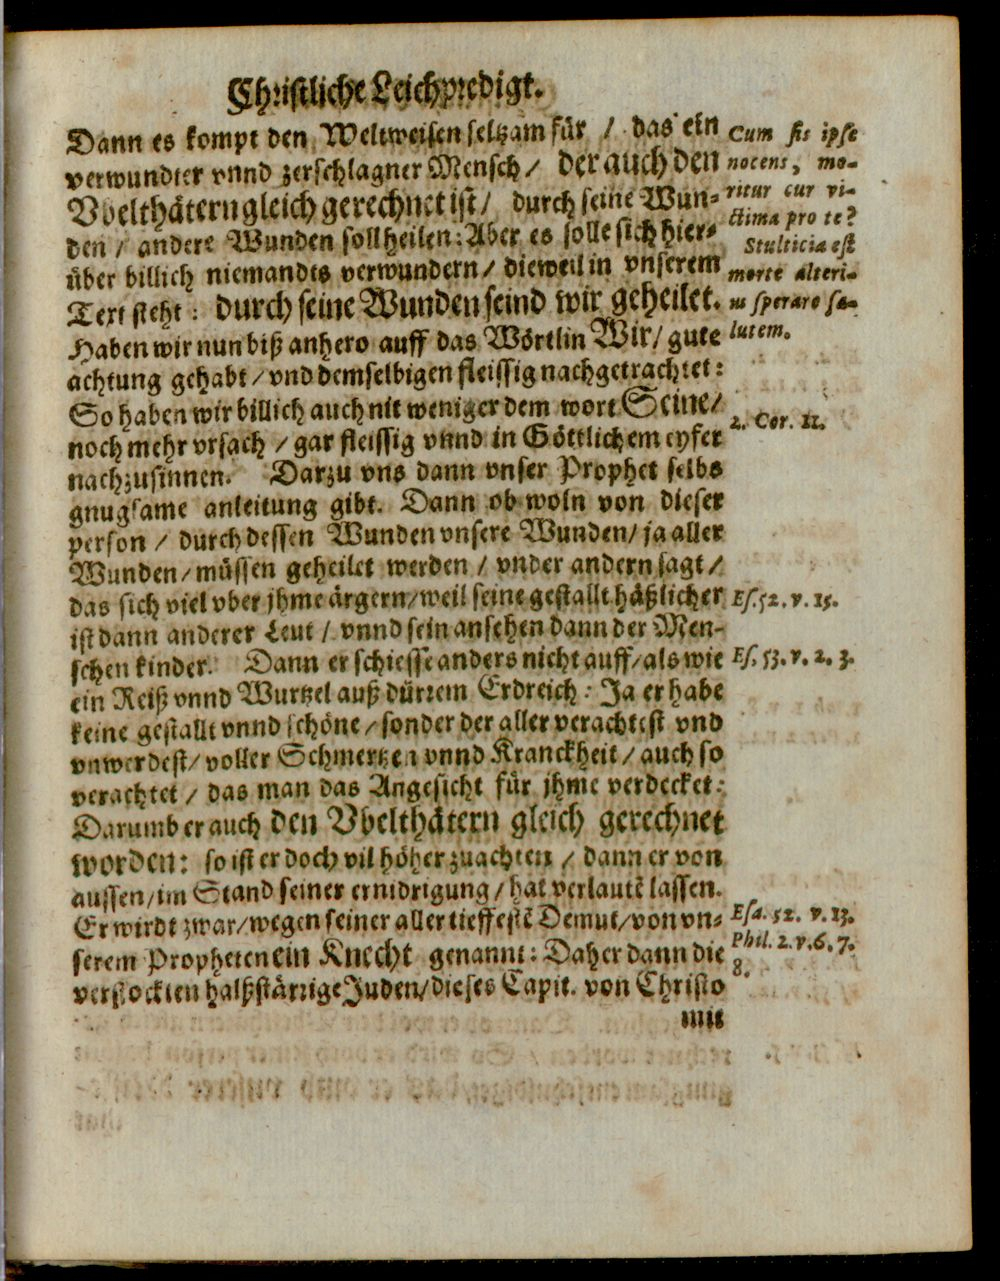 Christliche Leichpredigt.
Dann es kompt den Weltweisen seltzam für / das ein
verwundter vnnd zerschlagner Mensch / der auch den
Vbelthätern gleich gerechnet ist / durch seine Wun-
den / andere Wunden soll heilen: Aber es solle sich hier-
über billich niemandts verwundern / dieweil in vnserem
Text steht: durch seine Wunden seind wir geheilet.
Haben wir nun biß anhero auff das Wörtlin Wir / gute
achtung gehabt / vnd demselbigen fleissig nachgetrachtet:
So haben wir billich auch nit weniger dem wort Seine /
noch mehr vrsach / gar fleissig vnnd in Göttlichem eyfer
nachzusinnen. Darzu vns dann vnser Prophet selbs
gnugsame anleitung gibt. Dann ob woln von dieser
person / durch dessen Wunden vnsere Wunden / ja aller
Wunden / müssen geheilet werden / vnder andern sagt /
das sich viel vber jhme ärgern / weil seine gestallt häßlicher
ist dann anderer Leut / vnnd sein ansehen dann der Men-
schen kinder. Dann er schiesse anders nicht auff / als wie
ein Reiß vnnd Wurtzel auß dürrem Erdreich: Ja er habe
keine gestallt vnnd schöne / sonder der aller verachtest vnd
vnwerdest / voller Schmertzen vnnd Kranckheit / auch so
verachtet / das man das Angesicht für jhme verdecket:
Darumb er auch den Vbelthätern gleich gerechnet
worden: so ist er doch vil höher zuachten / dann er von
aussen / im Stand seiner ernidrigung / hat verlautē lassen.
Er wirdt zwar / wegen seiner aller tieffestē Demut / von vn-
serem Propheten ein Knecht genannt: Daher dann die
verstockten halßstärrige Juden / dieses Capit. von Christo
mit
Cum sis ipse
nocens, mo-
ritur cur vi-
ctima pro te?
Stulticia est
morte alteri-
us sperare sa-
lutem.
2. Cor. 11.
Es. 52. v. 15.
Es. 53. v. 2. 3.
Esa. 52. v. 13.
Phil. 2. v. 6. 7.
8.